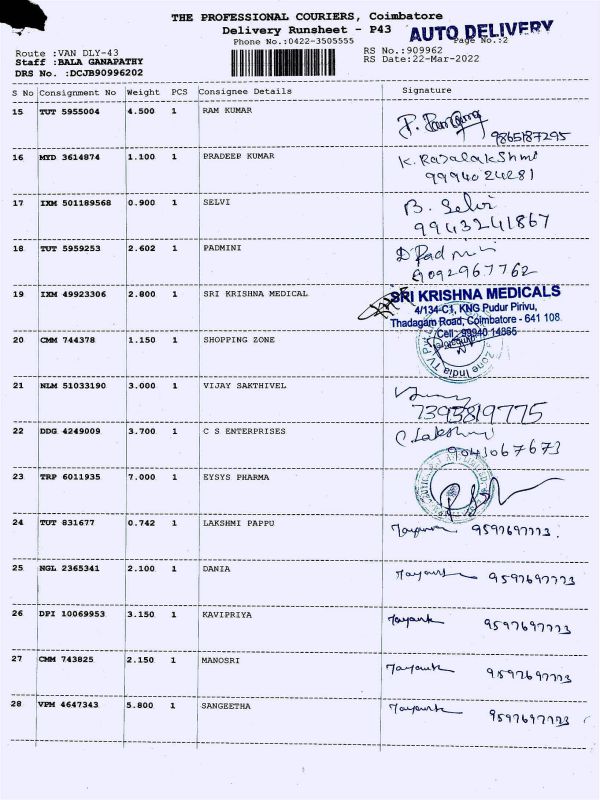 THE PROFESSIONAL COURIERS, Coimbatore
Delivery Runsheet - P43
AUTO DELIVERY
Phone No.:0422-3505555
Page No.:2
Route :VAN DLY-43
RS No.:909962
Staff :BALA GANAPATHY
RS Date:22-Mar-2022
DRS No. :DCJB90996202
S No Consignment No Weight PCS Consignee Details Signature
15 TUT 5955004 4.500 1 RAM KUMAR
9865187295
16 MYD 3614874 1.100 1 PRADEEP KUMAR K. Rajalakshmi
9994024281
17 IXM 501189568 0.900 1 SELVI B. Selvi
9943241867
18 TUT 5959253 2.602 1 PADMINI D Padmini
9092967762
19 IXM 49923306 2.800 1 SRI KRISHNA MEDICAL SRI KRISHNA MEDICALS
4/134-C1, KNG Pudur Pirivu,
Thadagam Road, Coimbatore - 641 108
Cell : 99940 14865
20 CMM 744378 1.150 1 SHOPPING ZONE
Zone India TV
21 NLM 51033190 3.000 1 VIJAY SAKTHIVEL
7393819775
22 DDG 4249009 3.700 1 C S ENTERPRISES C. Lakshmi
9041067673
23 TRP 6011935 7.000 1 EYSYS PHARMA
24 TUT 831677 0.742 1 LAKSHMI PAPPU 9597697773
25 NGL 2365341 2.100 1 DANIA 9597697773
26 DPI 10069953 3.150 1 KAVIPRIYA 9597697773
27 CMM 743825 2.150 1 MANOSRI 9597697773
28 VPM 4647343 5.800 1 SANGEETHA 9597697773